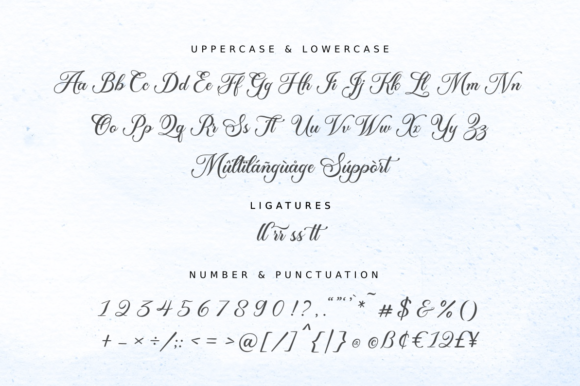 UPPERCASE & LOWERCASE
Aa Bb Cc Dd Ee Ff Gg Hh Ii Jj Kk Ll Mm Nn
Oo Pp Qq Rr Ss Tt Uu Vv Ww Xx Yy Zz
Múltiláñgùàge Súppòrt
LIGATURES
ll rr ss tt
NUMBER & PUNCTUATION
1 2 3 4 5 6 7 8 9 0 ! ? , . “ ” “ ‘ ’ * ~ # $ & % ( )
+ – × ÷ / ; : < = > @ [ / ] ^ { | } ® © ß ¢ € 1 2 £ ¥